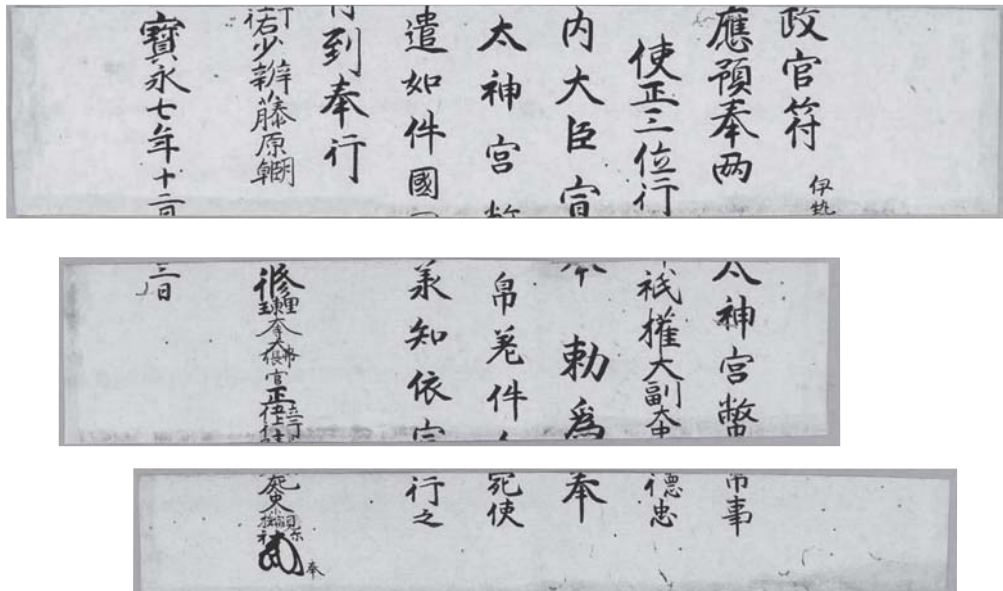 政官符 伊勢
應預奉兩
使正三位行
内大臣宣
太神宮幣
遣如件國
到奉行
右少辨藤原朝
寳永七年十二月
太神宮幣
祇權大副大中
勅爲
帛差件
承知依宣
修理東大寺大佛長官正五位上行
三日
帛事
德忠
奉
宛使
行之
奉